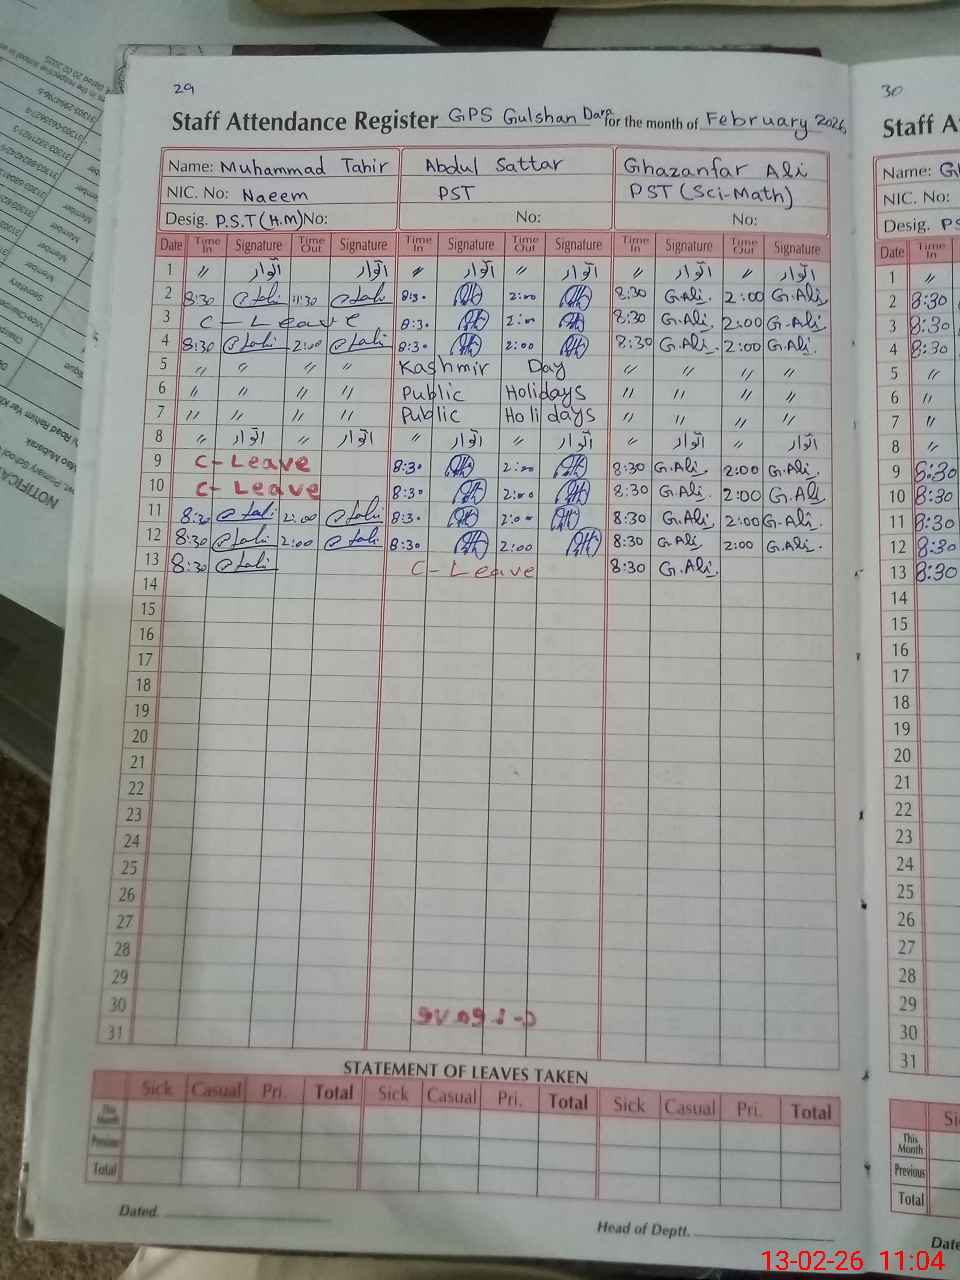 29
Staff Attendance Register GPS Gulshan Dara for the month of February 2026
Name: Muhammad Tahir Abdul Sattar Ghazanfar Ali
NIC. No: Naeem PST PST (Sci-Math)
Desig. P.S.T (H.M) No: No: No:
Date Time In Signature Time Out Signature Time In Signature Time Out Signature Time In Signature Time Out Signature
1 〃 اتوار اتوار 〃 اتوار 〃 اتوار 〃 اتوار 〃 اتوار
2 8:30 11:30 8:30 2:00 8:30 G.Ali. 2:00 G.Ali
3 C-Leave 8:30 2:00 8:30 G.Ali. 2:00 G.Ali
4 8:30 2:00 8:30 2:00 8:30 G.Ali. 2:00 G.Ali.
5 〃 〃 〃 〃 Kashmir Day 〃 〃 〃 〃
6 〃 〃 〃 〃 Public Holidays 〃 〃 〃 〃
7 〃 〃 〃 〃 Public Holidays 〃 〃 〃 〃
8 〃 اتوار 〃 اتوار 〃 اتوار 〃 اتوار 〃 اتوار 〃 اتوار
9 C-Leave 8:30 2:00 8:30 G.Ali. 2:00 G.Ali.
10 C-Leave 8:30 2:00 8:30 G.Ali. 2:00 G.Ali
11 8:30 2:00 8:30 2:00 8:30 G.Ali. 2:00 G.Ali.
12 8:30 2:00 8:30 2:00 8:30 G.Ali. 2:00 G.Ali.
13 8:30 C-Leave 8:30 G.Ali.
14
15
16
17
18
19
20
21
22
23
24
25
26
27
28
29
30
31
STATEMENT OF LEAVES TAKEN
Sick Casual Pri. Total Sick Casual Pri. Total Sick Casual Pri. Total
This Month
Previous
Total
Dated.
Head of Deptt.
30
Staff A
Name:
NIC. No:
Desig. PS
Date Time In
1 〃
2 8:30
3 8:30
4 8:30
5 〃
6 〃
7 〃
8 〃
9 8:30
10 8:30
11 8:30
12 8:30
13 8:30
14
15
16
17
18
19
20
21
22
23
24
25
26
27
28
29
30
31
This Month
Previous
Total
13-02-26 11:04